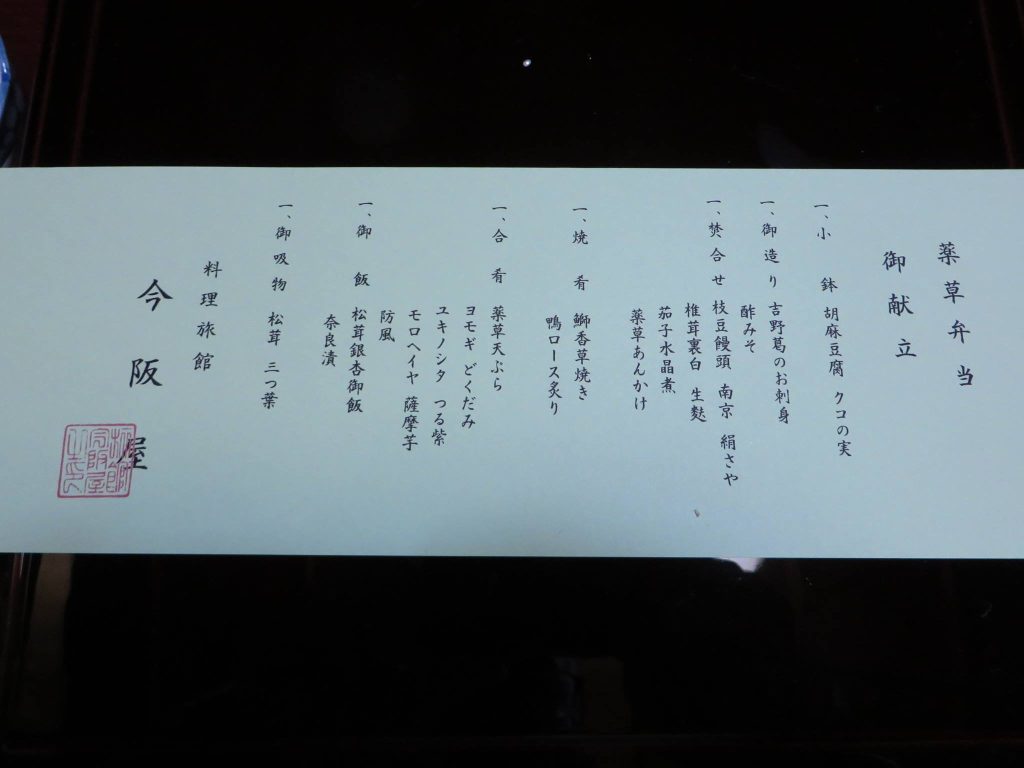 薬草弁当
御献立
一、小 鉢 胡麻豆腐 クコの実
一、御造り 吉野葛のお刺身
酢みそ
一、焚合せ 枝豆饅頭 南京 絹さや
椎茸裏白 生麩
茄子水晶煮
薬草あんかけ
一、焼 肴 鰤香草焼き
鴨ロース炙り
一、合 肴 薬草天ぷら
ヨモギ どくだみ
ユキノシタ つる紫
モロヘイヤ 薩摩芋
防風
一、御 飯 松茸銀杏御飯
奈良漬
一、御吸物 松茸 三つ葉
料理旅館
今阪屋